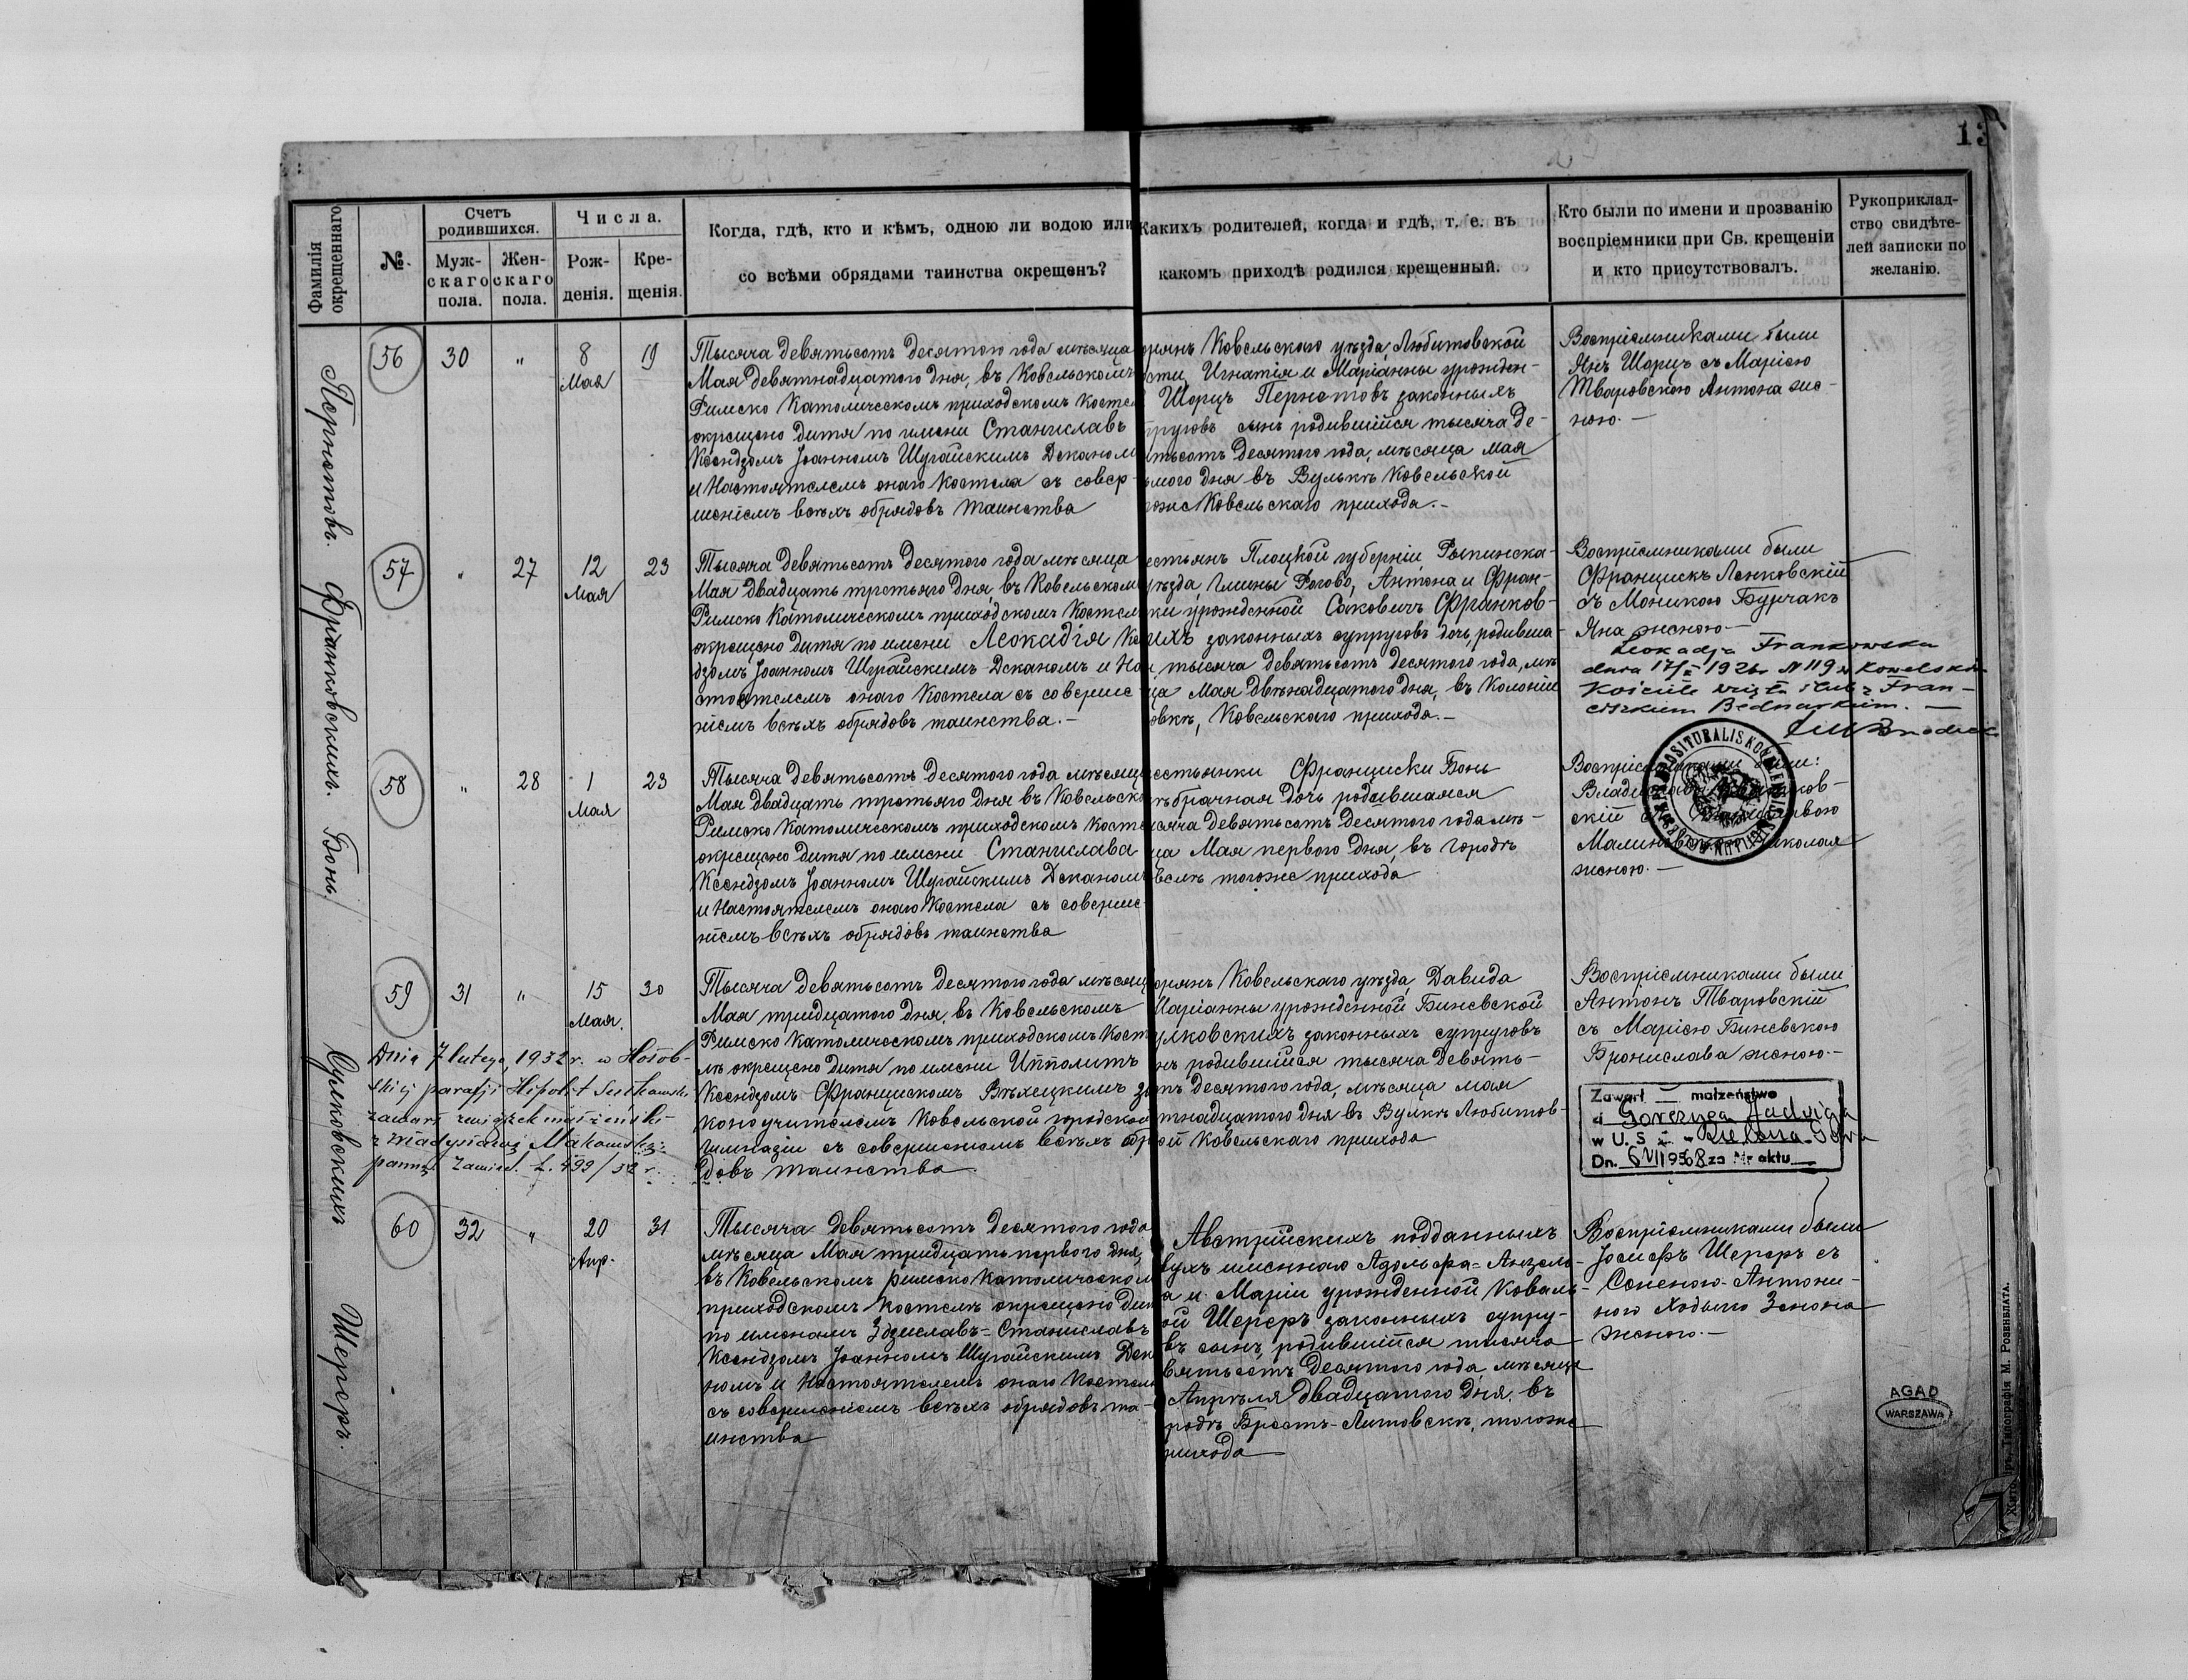 13
Фамилія окрещеннаго
№.
Счетъ родившихся.
Муж-скаго пола.
Жен-скаго пола.
Числа.
Рож-денія.
Кре-щенія.
Когда, гдѣ, кто и кѣмъ, одною ли водою или
со всѣми обрядами таинства окрещенъ?
Какихъ родителей, когда и гдѣ, т. е. въ
какомъ приходѣ родился крещенный.
Кто были по имени и прозванію
воспріемники при Св. крещеніи
и кто присутствовалъ.
Рукоприклад-
ство свидѣте-
лей записки по
желанію.
Пернотовъ.
56 30 " 8 Мая 19
Тысяча девятьсотъ десятого года мѣсяца
Мая девятнадцатого дня, въ Ковельскомъ
Римско Католическомъ приходскомъ костел
окрещено дитя по имени Станиславъ
Ксендзомъ Іоанномъ Шугайскимъ Деканом
и Настоятелемъ онаго костела съ совер-
шеніемъ всѣхъ обрядовъ таинства
орянъ Ковельскаго уѣзда, Любитовской
сти, Игнатія и Маріанны урожден-
Шорцъ Пернотовъ законныхъ
пруговъ сынъ родившійся тысяча де-
тьсотъ десятого года, мѣсяца Мая
ьмого дня въ Вулькѣ Ковельской
гоже Ковельскаго прихода.-
Воспріемниками были
Янъ Шорцъ съ Маріею
Тваровскою Антона же-
ною.-
Франковскихъ.
57 " 27 12 Мая 23
Тысяча девятьсотъ десятого года мѣсяца
Мая двадцать третьяго дня, въ Ковельском
Римско Католическомъ приходскомъ костел
окрещено дитя по имени Леокадія Ксе
дзомъ Іоанномъ Шугайскимъ Деканомъ и На
стоятелемъ онаго костела съ соверше
ніемъ всѣхъ обрядовъ таинства.-
естьянъ Плоцкой губерніи, Рыпинска-
уѣзда, гмины Рогово, Антона и Фран-
ки урожденной Саковичъ Франков-
ихъ законныхъ супруговъ дочь, родивша-
тысяча девятьсотъ десятого года, мѣ
ца Мая двѣнадцатого дня, въ Колоніи
овкѣ, Ковельскаго прихода.-
Воспріемниками были
Францискъ Ленковскій
съ Моникою Бурчакъ
Яна женою-
Leokadja Frankowska
dnia 17/ 1926 N 119 w Kowelskim
Kościele wzięła ślub z Fran-
ciszkiem Bednarkiem.-
Бонь.
58 " 28 1 Мая 23
Тысяча девятьсотъ десятого года мѣсяц
Мая двадцать третьяго дня въ Ковельск
Римско Католическомъ приходскомъ косте
окрещено дитя по имени Станислава
Ксендзомъ Іоанномъ Шугайскимъ Деканом
и Настоятелемъ онаго костела съ соверше-
ніемъ всѣхъ обрядовъ таинства
естьянки Франциски Бонь
ѣбрачная дочь родившаяся
сяча девятьсотъ десятого года мѣ-
ца Мая первого дня, въ городѣ
велѣ тогоже прихода
Воспріемниками были:
скій съ
женою.-
Сулковскихъ
59 31 " 15 Мая. 30
Тысяча девятьсотъ десятого года мѣсяц
Мая тридцатого дня, въ Ковельскомъ
Римско Католическомъ приходскомъ Кост
лѣ окрещено дитя по имени Ипполитъ
Ксендзомъ Францискомъ Вѣхецкимъ за
коноучителемъ Ковельской городской
гимназіи съ совершеніемъ всѣхъ обря
довъ таинства
орянъ Ковельскаго уѣзда, Давида
Маріанны урожденной Биневской
улковскихъ законныхъ супруговъ
нъ родившійся тысяча девять-
тъ десятого года, мѣсяца мая
тнадцатого дня въ Вулкѣ Любитов-
ой Ковельскаго прихода
Воспріемниками были
Антонъ Тваровскій
съ Маріею Биневскою
Бронислава женою.-
Dnia 7 lutego, 1932 r. w Hołob-
skiej parafji Hipolit Sułkowski
zawarł związek małżeński
z Władysławą Makowską
panną Zawiad. L. 499/32 r.
Zawarł — małżeństwo
z Gorczyca Jadwigą
w U. S. C. w Zielona-Góra
Dn. 6 VII 1968 za Nr aktu —
Шереръ.
60 32 " 20 Апр. 31
Тысяча девятьсотъ десятого года
мѣсяца Мая тридцать первого дня,
въ Ковельскомъ римско Католическом
приходскомъ костелѣ окрещено дит
по именамъ Здзиславъ=Станиславъ
Ксендзомъ Іоанномъ Шугайскимъ Дек
номъ и Настоятелемъ онаго костел
съ совершеніемъ всѣхъ обрядовъ та-
инства
Австрійскихъ подданныхъ
вухъ именнаго Адольфа=Анзель-
а и Маріи урожденной Коваль-
ой Шереръ законныхъ супру-
въ сынъ, родившійся тысяча
вятьсотъ десятого года, мѣсяца
Апрѣля двадцатого дня, въ
родѣ Брестъ-Литовскѣ, тогоже
рихода
Воспріемниками были
Іосифъ Шереръ съ
Зенона
женою.-
AGAD
WARSZAWA
Типографія М. Розенблата.